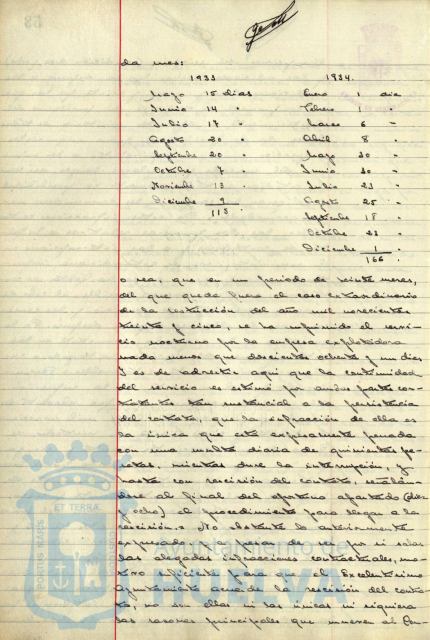 da mes:
1933 1934.
Mayo 15 dias Enero 1 dia
Junio 14 " Febrero 1 "
Julio 17 " Marzo 6 "
Agosto 20 " Abril 8 "
Septiembre 20 " Mayo 30 "
Octubre 7 " Junio 30 "
Noviembre 13 " Julio 23 "
Diciembre 9 Agosto 25 "
115 Septiembre 18 "
Octubre 23 "
Diciembre 1 "
166 "
o sea, que en un periodo de veinte meses,
del que queda fuera el caso extraordinario
de la restricción del año mil novecientos
treinta y cinco, se ha suprimido el servi-
cio nocturno por la empresa explotadora
nada menos que doscientos ochenta y un dias
Y es de advertir aqui que la continuidad
del servicio es estimó por ambas partes con-
tratantes tan sustancial a la persistencia
del contrato, que la infracción de ella es
la única que está expresamente penada
con una multa diaria de quinientas pe-
setas, mientras dure la interrupción, y
hasta con rescisión del contrato, señalan-
dose al final del apartado (diez
y ocho) el procedimiento para llegar a la
rescisión.= No obstante lo anteriormente
expresado y a pesar de ser por si solas
las alegadas infracciones contractuales, mo-
tivo suficiente para que el Excelentisimo
Ayuntamiento acuerde la rescisión del contra-
to, no son ellas ni las únicas ni siquiera
las razones principales que mueven al Con-
PORTUS MARIS ET TERRAE
Ayuntamiento de
HUELVA